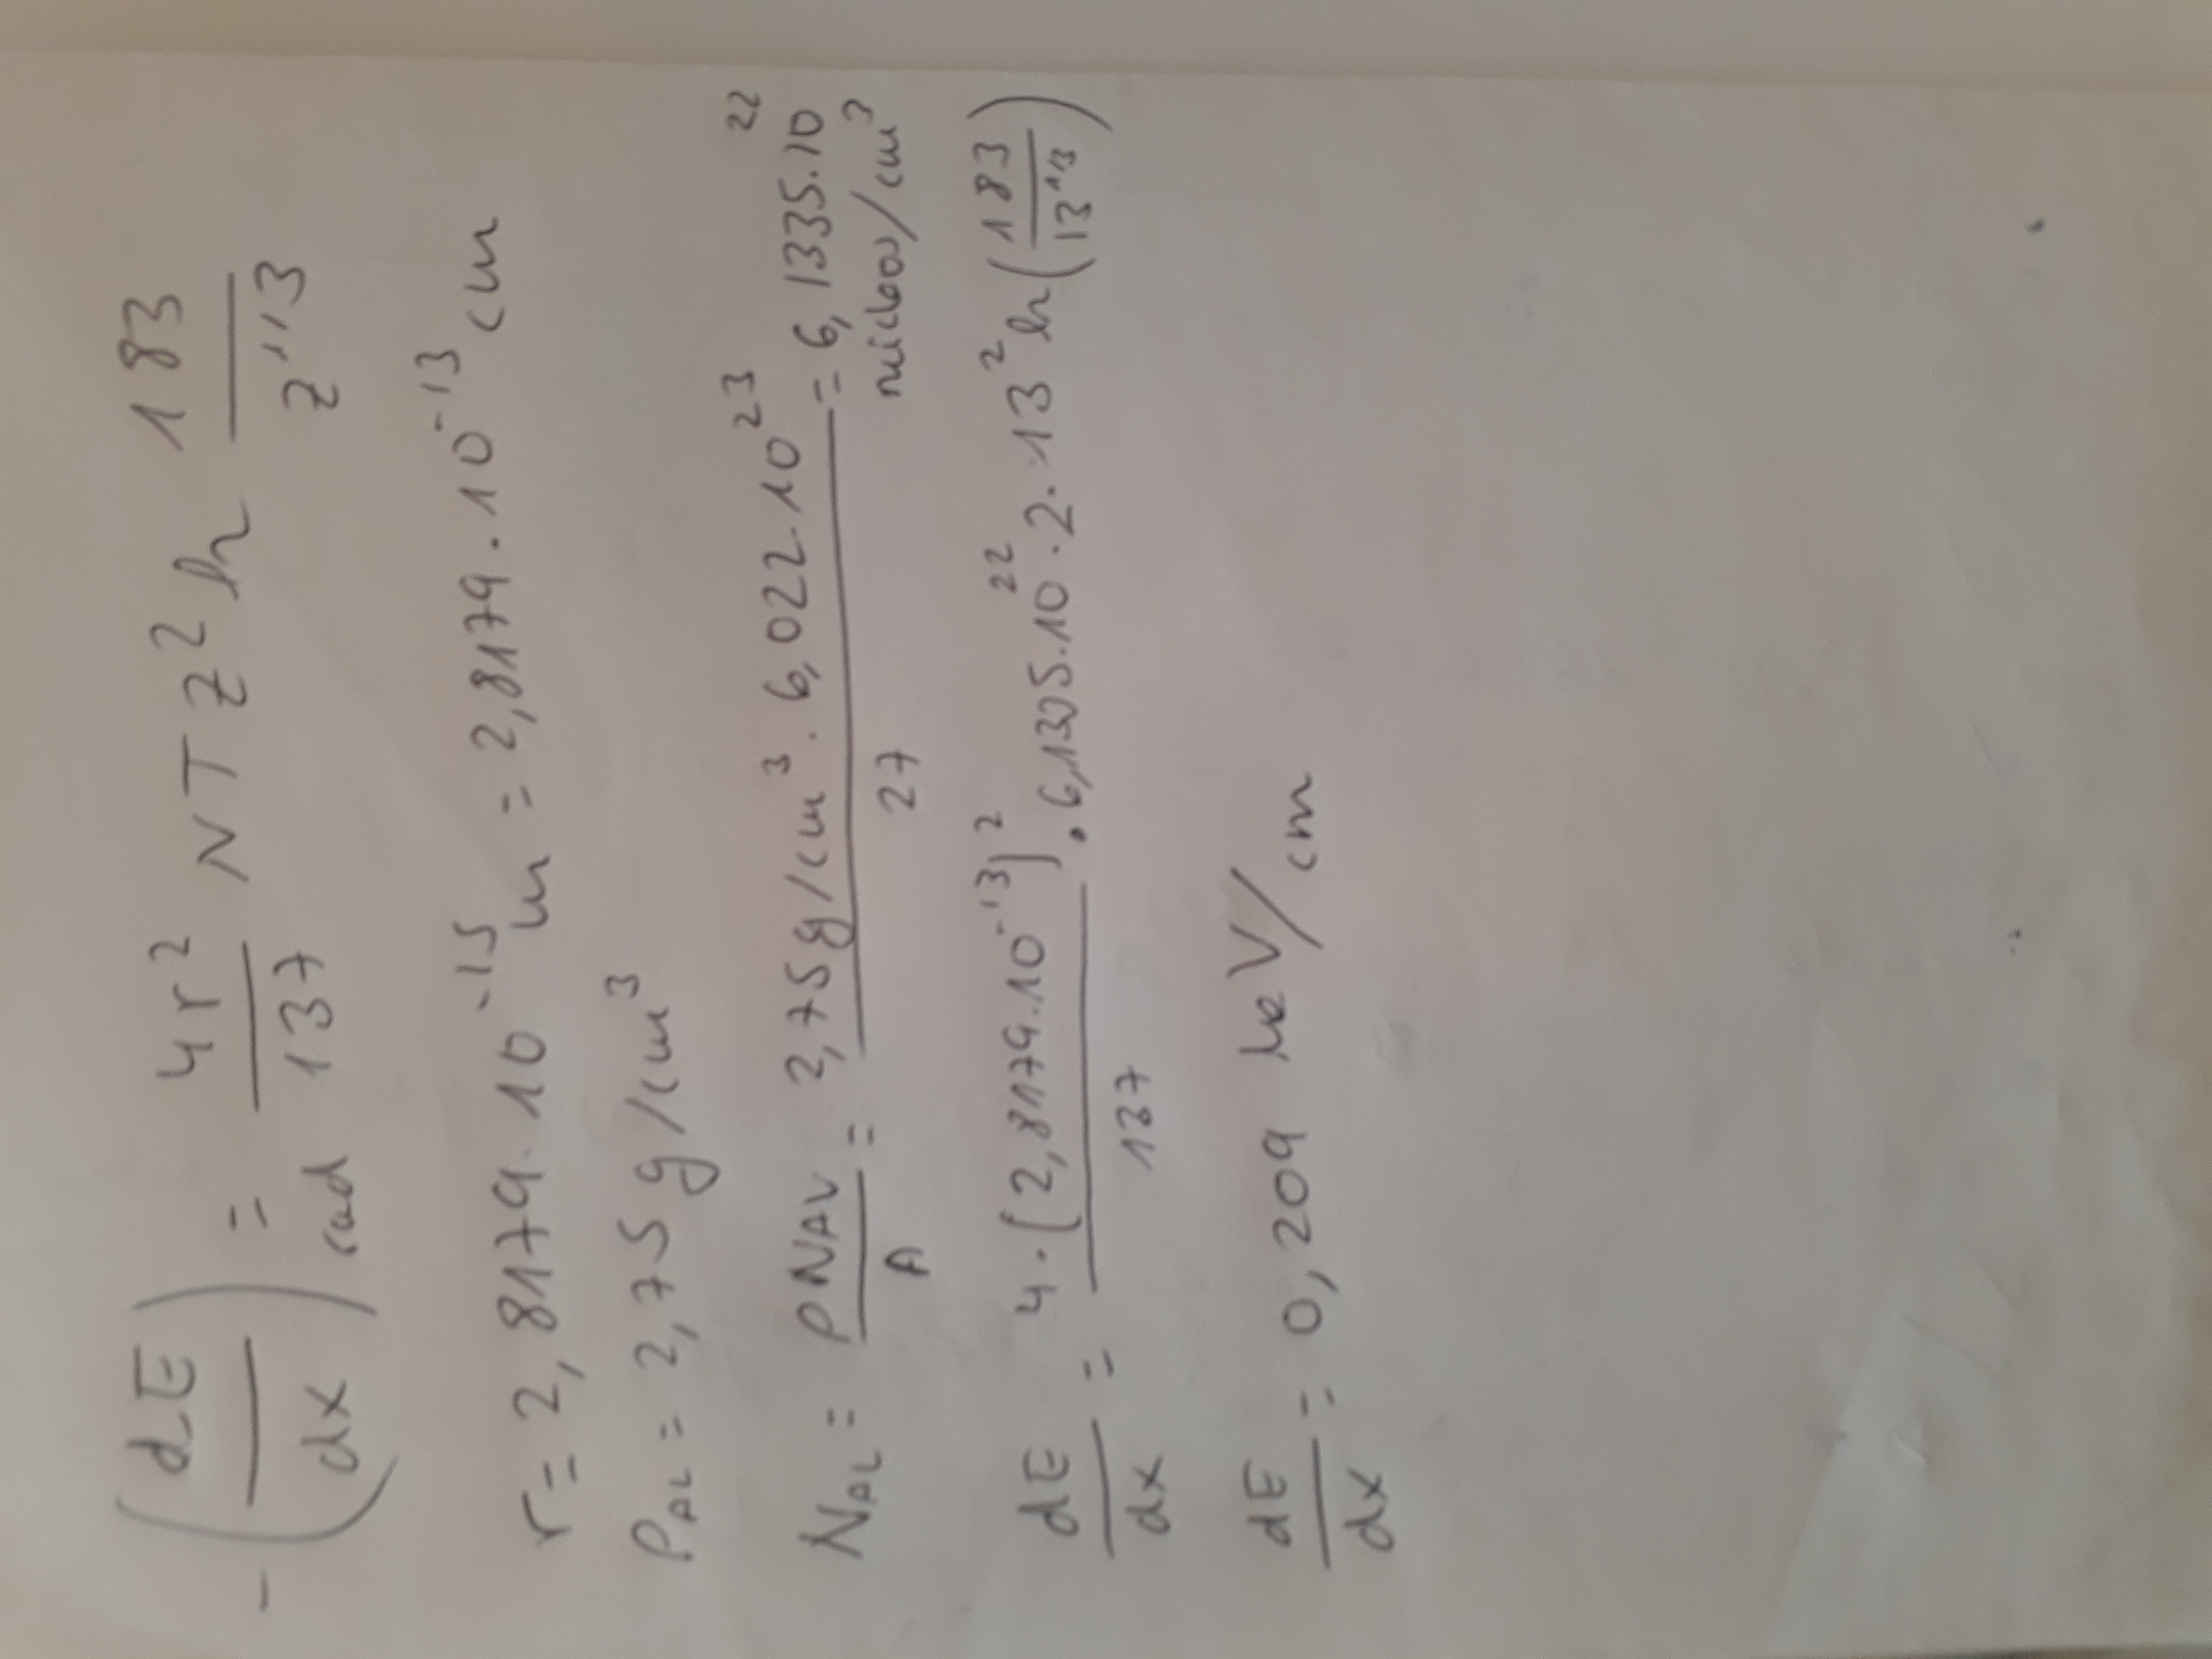 - (dE/dx)rad = 4r²/137 N T Z² ln 183/Z^1/3
r = 2,8179.10^-15 m = 2,8179.10^-13 cm
ρAL = 2,75 g/cm³
NAL = ρNAV/A = 2,75g/cm³.6,022.10^23/27 = 6,1335.10^22
núcleos/cm³
dE/dx = 4.(2,8179.10^-13)²/137.6,1335.10^22.2.13² ln(183/13^1/3)
dE/dx = 0,209 MeV/cm